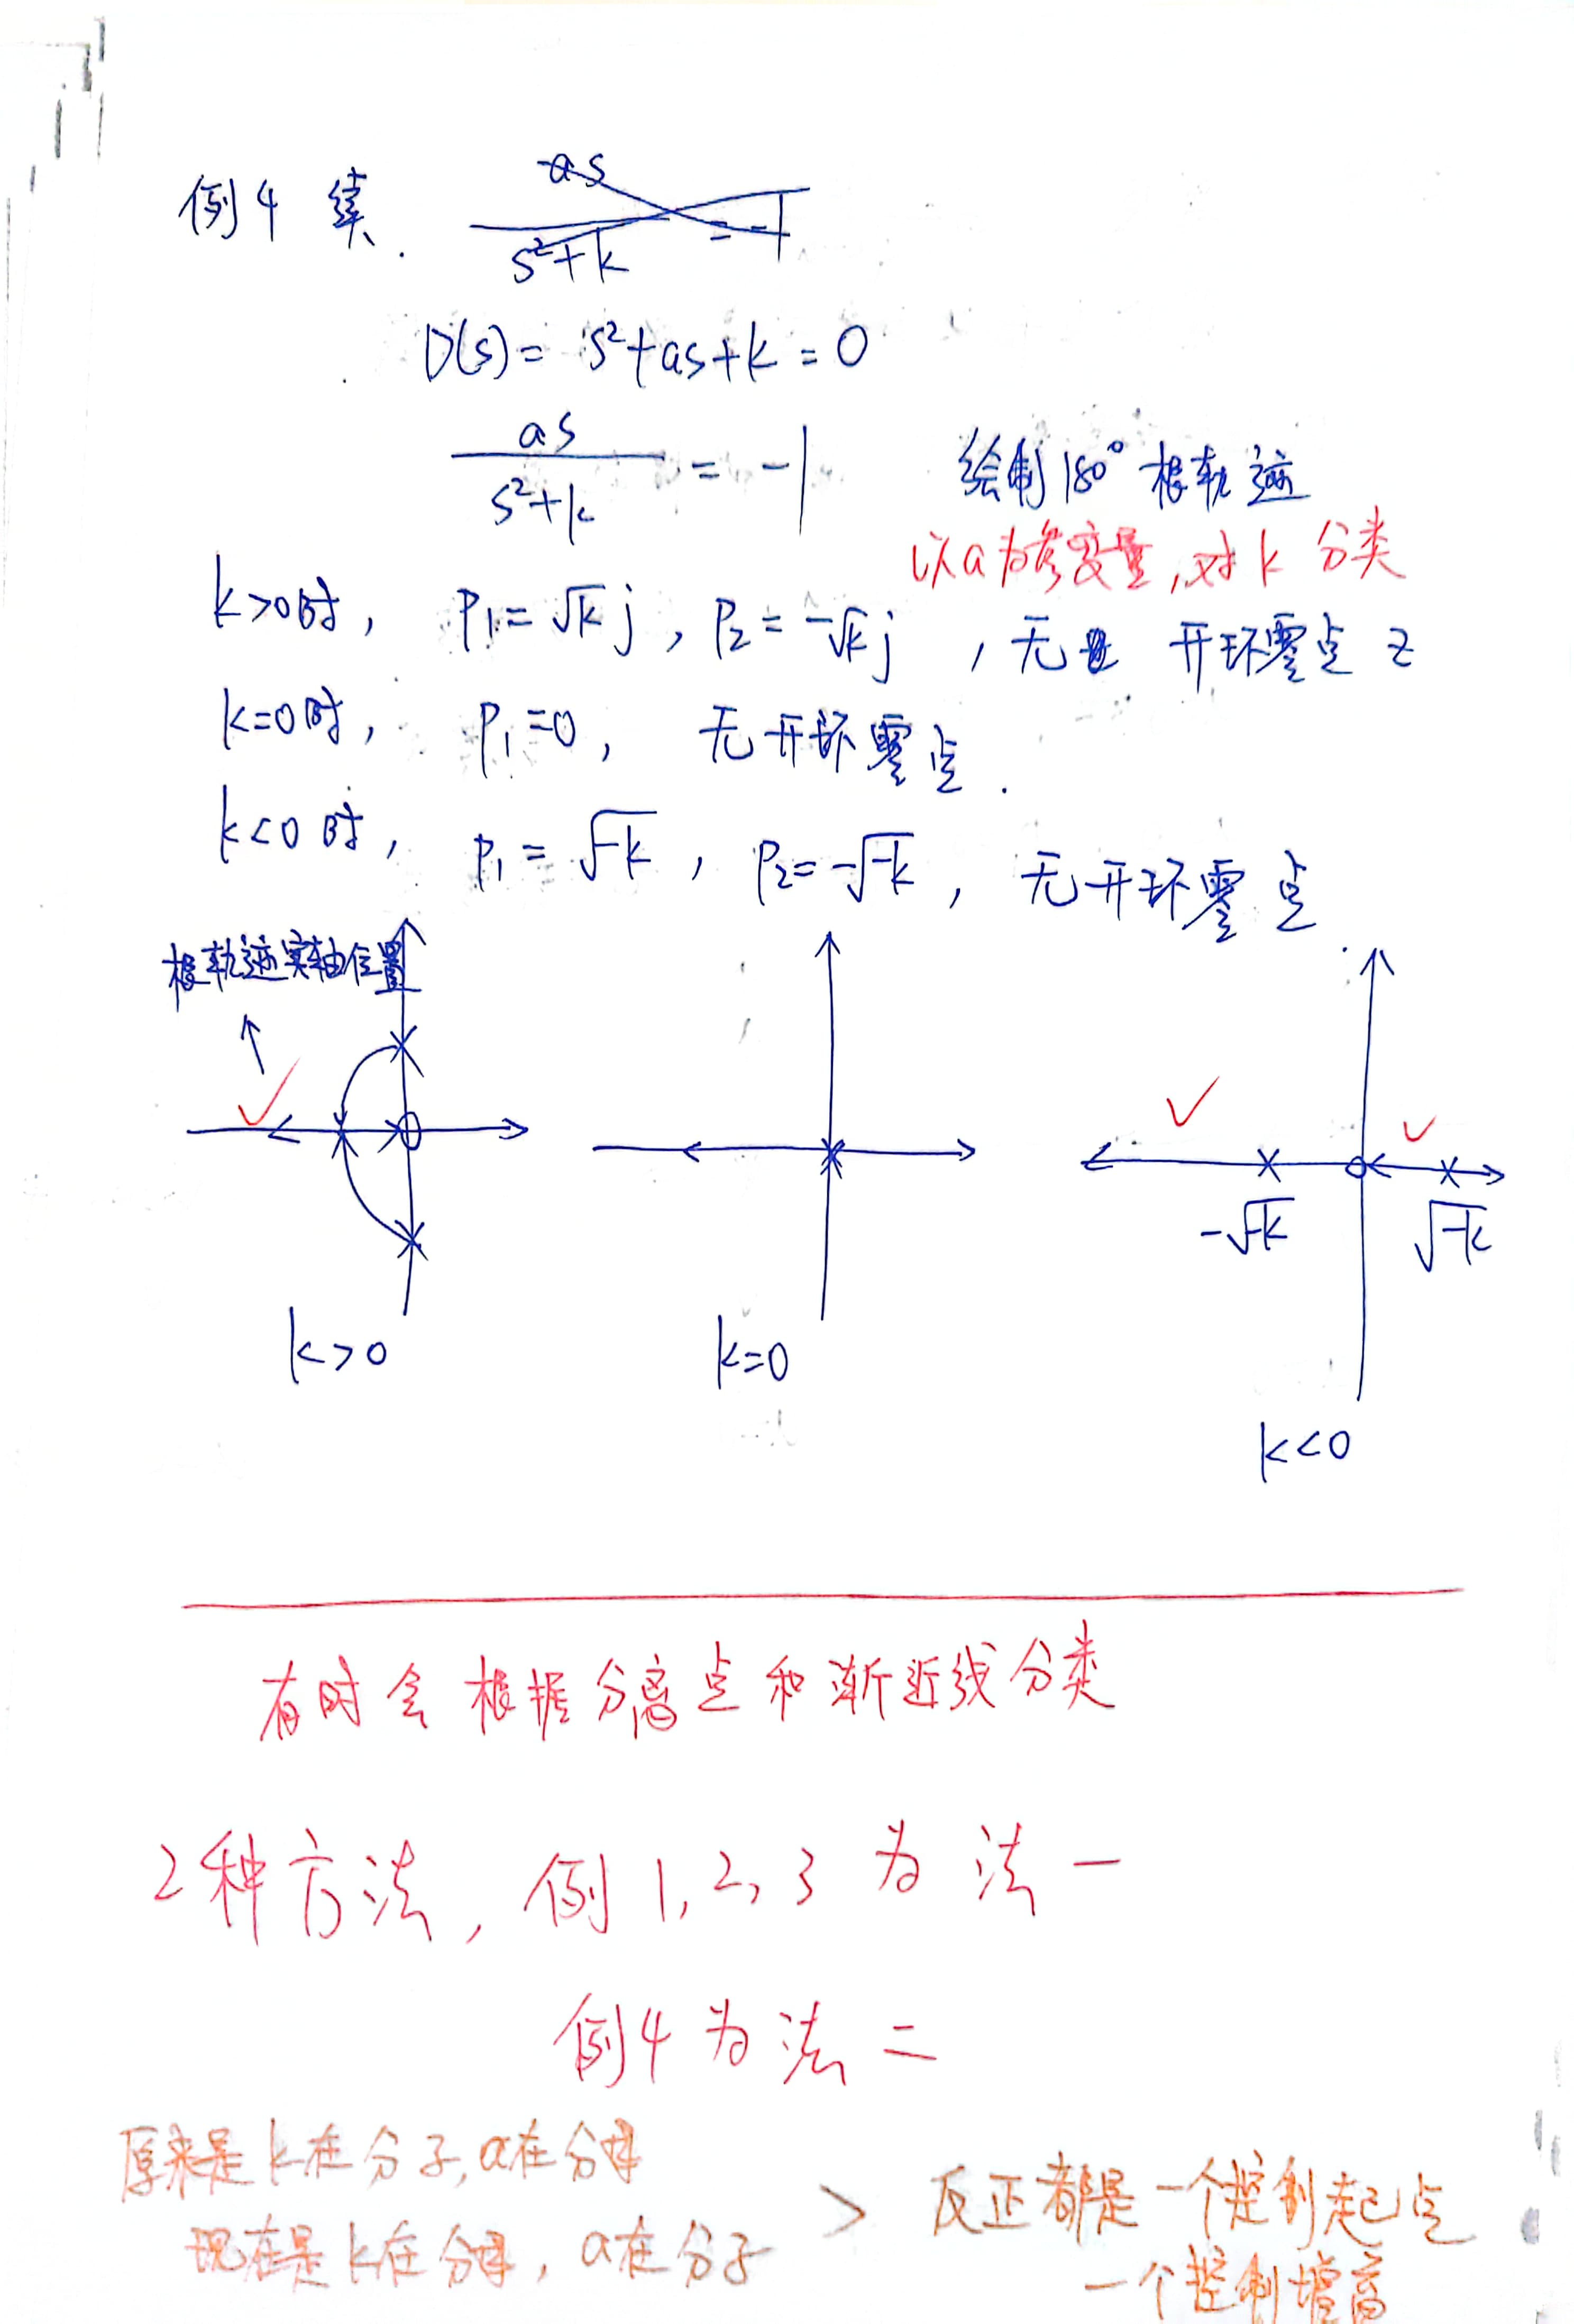 例4 续.
as
s²+k = -1
D(s) = s²+as+k = 0
as
s²+k = -1 绘制180°根轨迹
以a为参变量,对k分类
k>0时, P₁=√k j, P₂=-√k j, 无 开环零点 z
k=0时, P₁=0, 无开环零点.
k<0时, P₁=√-k, P₂=-√-k, 无开环零点.
根轨迹实轴位置
-√-k √-k
k>0 k=0
k<0
有时会根据分离点和渐近线分类
2种方法, 例1,2,3为法一
例4为法二
原来是k在分子,a在分母
现在是k在分母,a在分子 > 反正都是一个控制起点
一个控制增益